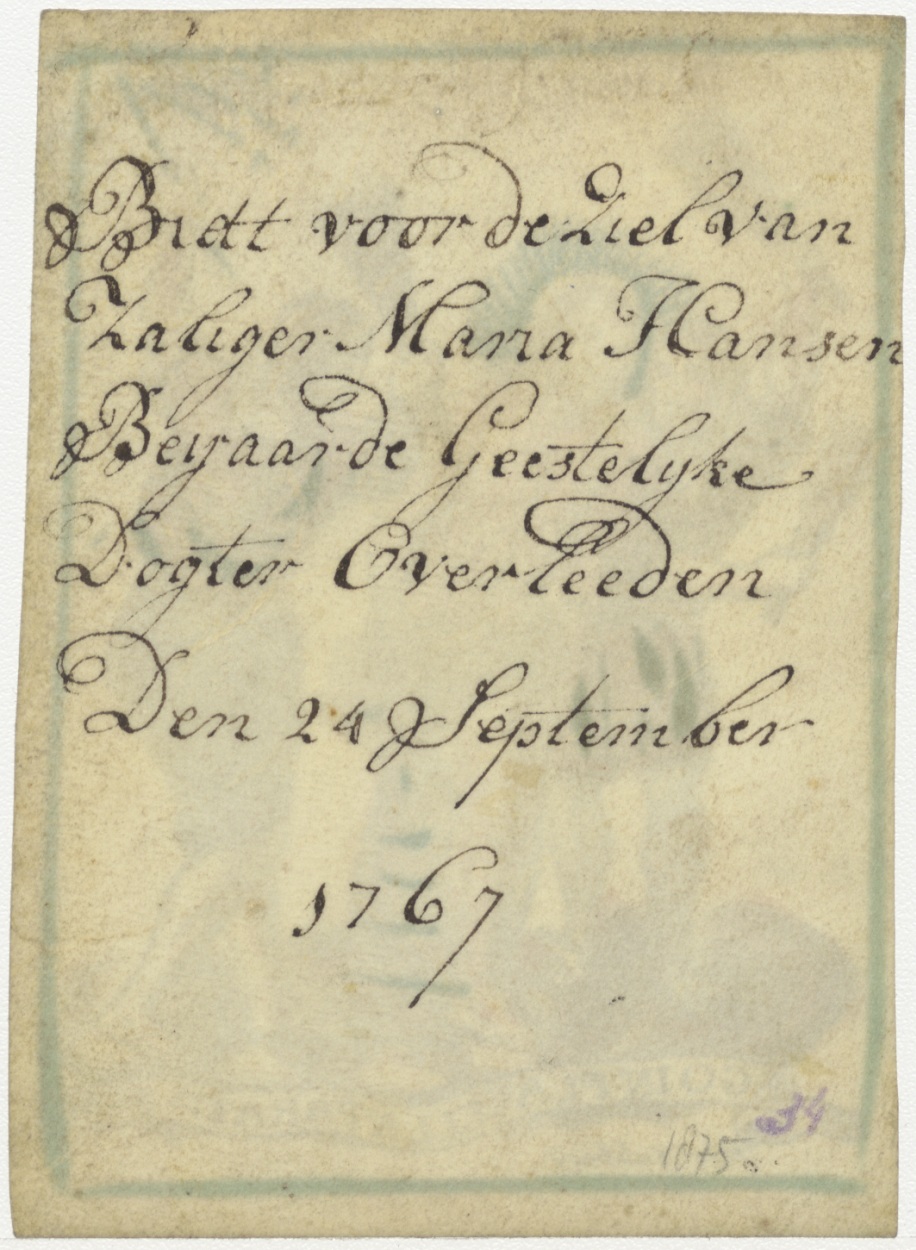 Bidt voor de Ziel van
Zaliger Maria Hansen
Beyaarde Geestelyke
Dogter Overleeden
Den 24 September
1767
34
1875